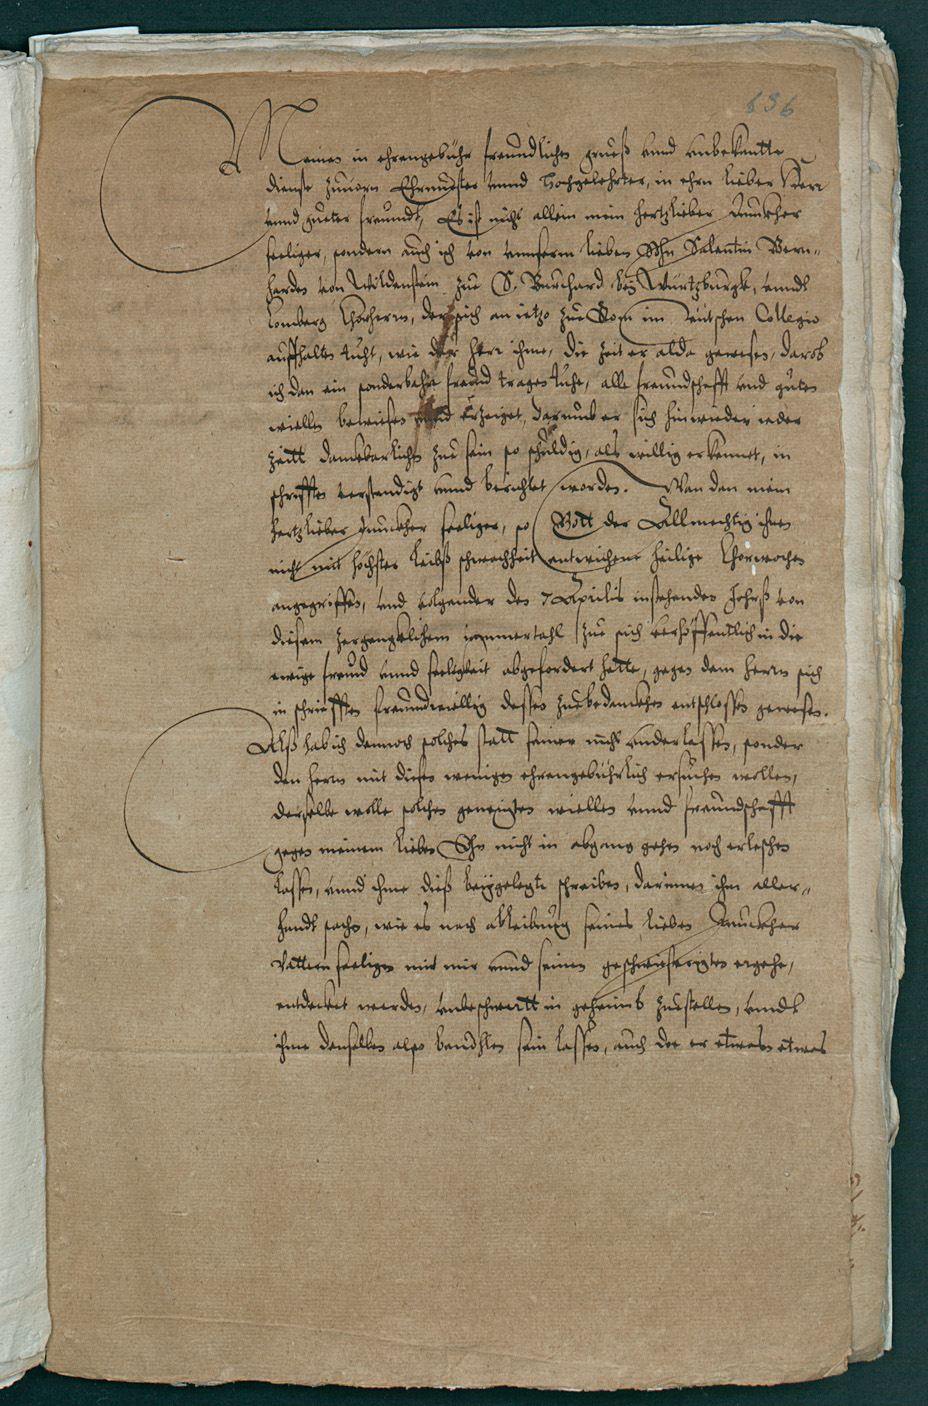 636
Meinen in ehrengebühr freundlichen grueß vnnd vnbekantte
dienste zuuorn Ehrnuester vnnd Hochgelehrter, in ehrn lieber Herr
vnnd gueter freundt, Es ist nicht allein mein hertzlieber Junckher
seeliger, sondern auch ich von vnnserm lieben Sohn Valentin Bern-
harden von Wildenstein zue S. Burchard bey Würtzburgk, vnndt
Comberg Chorherrn, der sich an ietzo zue Rom im Teutschen Collegio
auffhalten tuht, wie der Herr ihme, die zeit er alda gewesen, darob
ich dan ein sonderbahre freud tragen tuhe, alle freundschafft vnd guten
wiellen bewiesen vnd erzeiget, darumb er sich hinwieder ieder
zeitt danckbarlichen zue sein so schuldig, als willig erkennet, in
schrifften verstendigt vnnd berichtet worden. Wan den mein
hertzlieber Junckher seeliger, so Gott der Allmechtig ihnen
nicht mit höchster leibß schwachheit entwichene heilige Chorwochen
angegriffen, vnd volgender den 7 Aprilis instehenden Jahrß von
diesem zergengklichem jammertahl zue sich verhoffentlich in die
ewige freud vnnd seeligkeit abgefordert hette, gegen dem herrn sich
in schriefften freundtwiellig dessen zuebedancken entschlossen gewesen.
Alß hab ich dennoch solches statt seiner nicht vnderlassen, sonder
den herrn mit diesen wenigen ehrengebührlich ersuchen wollen,
derselbe wolle solchen geneigten wiellen vnnd freundschafft
gegen meinem lieben Sohn nicht in abgang gehen noch erleschen
lassen, vnnd ihme dieß beygelegte schreiben, darinnen ihm aller-
handt sachen, wie es nach ableibung seines lieben Junckher
Vattern seeligen mit mir vnnd seinen geschwiesterigten ergehe,
entdecket werden, vnbeschwertt in geheimb zuestellen, vnndt
ihme denselben also bevohlen sein lassen, auch do er etwaßen etwas